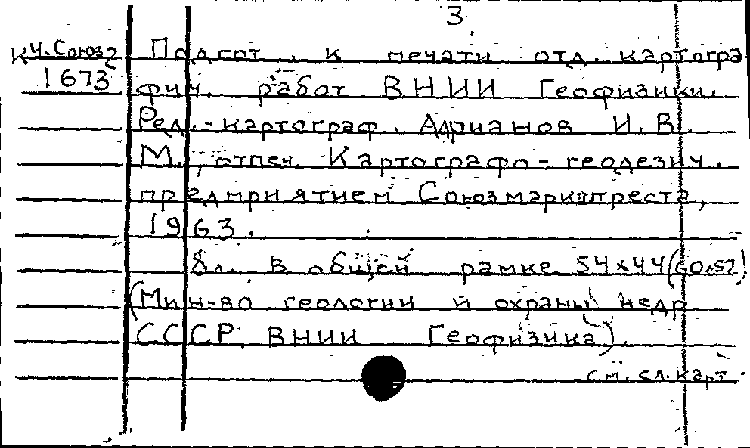 3
Кч. Союз2 Подгот. к печати отд. картогра
1673 фич. работ ВНИИ Геофизики.
Ред.-картограф. Адрианов И. В.
М., отпеч. Картографо-геодезич.
предприятием Союзмаркштреста,
1963.
8л. в общей рамке 54х44(60х52)
(Мин-во геологии и охраны недр
СССР. ВНИИ Геофизика).
см. сл. карт.